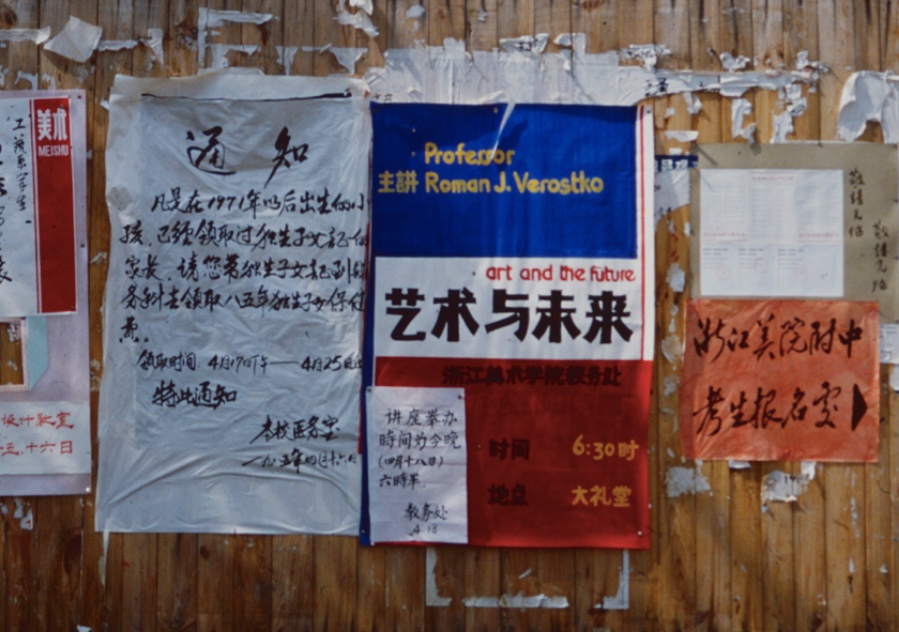 美术
MEISHU
工艺系学生
设计教室
五.十六日
通知
凡是在1971年以后出生的小
孩.已经领取过独生子女证的
家长.请您带独生子女证到
领取八五年独生子女保健
费.
领取时间 4月17日下午——4月25日
特此通知
本校医务室
一九八五年四月十六日
Professor
主講 Roman J. Verostko
art and the future
艺术与未来
浙江美术学院教务处
讲座举办
時间为今晚
(四月十八日)
六時半.
教务处
4.18
时间 6:30时
地点 大礼堂
敬请光临
敬请光临
浙江美院附中
考生报名室